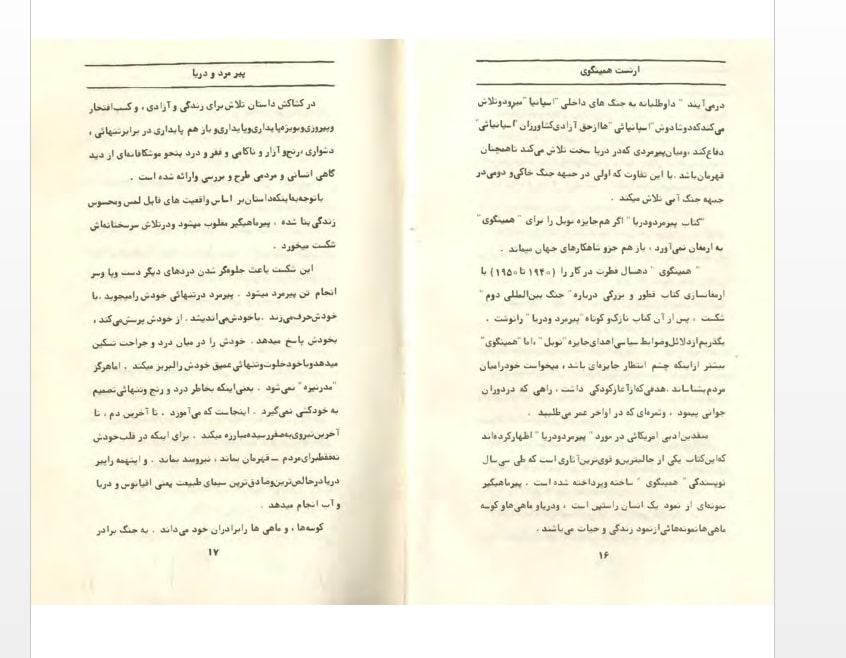 ارنست همینگوی
درمی‌آیند " داوطلبانه به جنگ های داخلی "اسپانیا "میرودوتلاش
می‌کندکه‌دوشادوش"اسپانیائی "هاازحق آزادی‌کشاورزان "اسپانیائی"
دفاع‌کند ،ومیان‌پیرمردی که‌در دریا سخت تلاش می‌کند تاهمچنان
قهرمان‌باشد .با این تفاوت که اولی در جبهه جنگ خاکی‌و دومی‌در
جبهه جنگ آبی تلاش میکند .
"کتاب پیرمردودریا "اگر هم‌جایزه نوبل را برای " همینگوی"
به ارمغان نمی‌آورد ، باز هم جزو شاهکارهای جهان میماند .
" همینگوی " ده‌سال فطرت در کار را (۱۹۴۰ تا ۱۹۵۰) با
ارمغانسازی کتاب قطور و بزرگی درباره" جنگ بین‌المللی دوم "
شکست ، پس از آن کتاب نازک‌و کوتاه "پیرمرد ودریا " رانوشت .
بگذریم‌ازدلائل‌وضوابط سیاسی‌اهدای‌جایزه "نوبل " ،اما "همینگوی"
بیشتر ازاینکه چشم انتظار جایزه‌ای باشد ، میخواست خودرامیان
مردم‌بشناساند .هدفی‌که‌ازآغازکودکی داشت ، راهی که دردوران
جوانی پیمود ، وثمره‌ای که در اواخر عمر می‌طلبید .
منقدین‌ادبی امریکائی در مورد " پیرمردودریا " اظهارکرده‌اند
که‌این‌کتاب یکی از جالبترین‌و قوی‌ترین‌آثاری است که طی سی‌سال
نویسندگی " همینگوی " ساخته وپرداخته شده است . پیرماهیگیر
نمونه‌ای از نمود یک انسان راستین است ، ودریاو ماهی‌هاو کوسه
ماهی‌هانمونه‌هائی‌ازنمود زندگی و حیات می‌باشند .
۱۶
پیر مرد و دریا
در کشاکش داستان تلاش‌برای زندگی و آزادی ، و کسب‌افتخار
وپیروزی‌وبویژه‌پایداری‌وپایداری‌و باز هم پایداری در برابرتنهائی ،
دشواری ،رنج‌و آزار و ناکامی و فقر و درد بنحو موشکافانه‌ای از دید
گاهی انسانی و مردمی طرح و بررسی وارائه شده است .
باتوجه‌به‌اینکه‌داستان‌بر اساس واقعیت های قابل لمس ومحسوس
زندگی بنا شده ، پیرماهیگیر مغلوب میشود ودرتلاش سرسختانه‌اش
شکست میخورد .
این شکست باعث جلوه‌گر شدن دردهای دیگر دست وپا وسر
انجام تن پیرمرد میشود . پیرمرد درتنهائی خودش رامیجوید .با
خودش‌حرف‌می‌زند .باخودش‌می‌اندیشد . از خودش پرسش‌می‌کند ،
بخودش پاسخ میدهد . خودش را در میان درد و جراحت تسکین
میدهدوباخودخلوت‌وتنهائی عمیق خودش رالبریز میکند . اماهرگز
"مدرنیزه " نمی‌شود . یعنی‌اینکه بخاطر درد و رنج وتنهائی‌تصمیم
به خودکشی نمی‌گیرد . اینجاست که می‌آموزد . تا آخرین دم ، تا
آخرین‌نیروی‌به‌صفررسیده‌مبارزه میکند . برای اینکه در قلب‌خودش
نه‌فقط‌برای‌مردم – قهرمان بماند ، نیرومند بماند . و اینهمه راپیر
دریادرخالص‌ترین‌وصادق‌ترین سیمای طبیعت یعنی اقیانوس و دریا
و آب انجام میدهد .
کوسه‌ها ، و ماهی ها رابرادران خود می‌داند . به جنگ برادر
۱۷